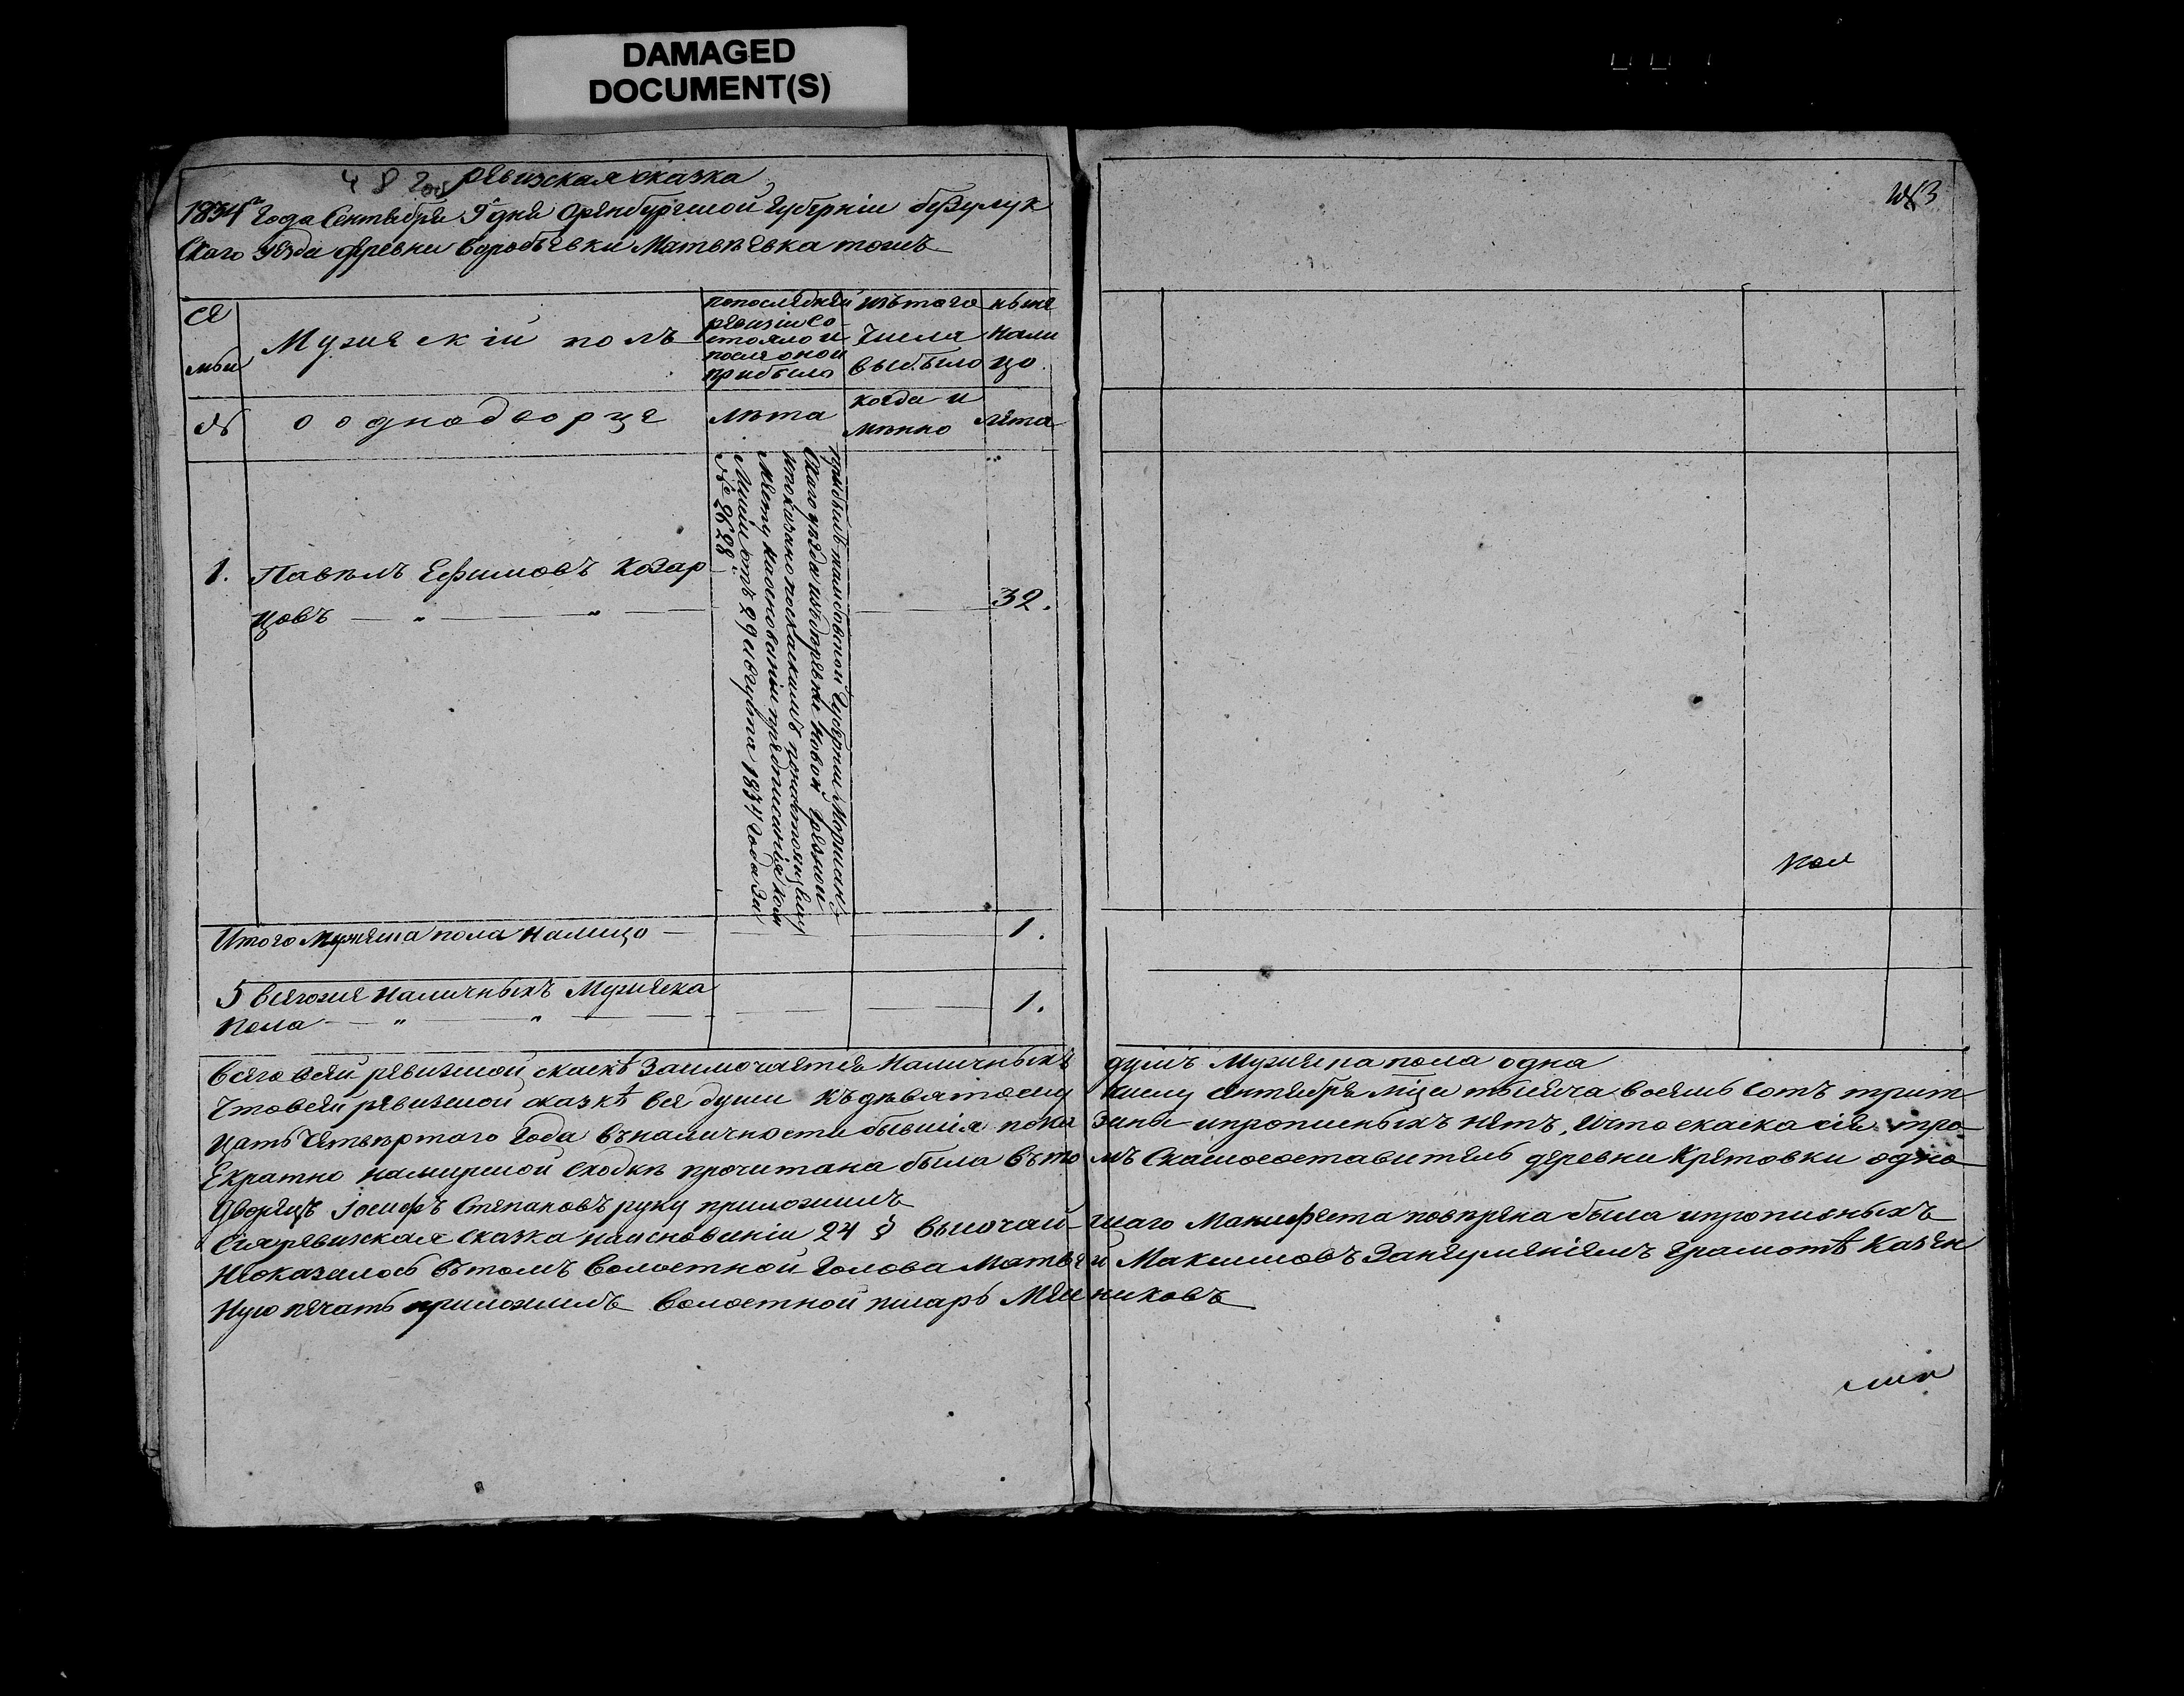 DAMAGED
DOCUMENT(S)
ревизская сказка
1834го года Сентября 9 дня Оренбургской губернiи бузулук
скаго уезда деревни Воробьевки Матвеевка тожъ
се
мьи
Мужескiй полъ
попоследней
ревизiи со-
стояло и
после оной
прибыло
изътого
числа
выбыло
ныне
нали
цо
№
о однодворце
лета
когда и
лета
1. Павелъ Ефимовъ Козар
цовъ — „ — „ — 32.
прибылъ тамбовской губернии Моршанс-
скаго уезда изъ деревни новой грязной
и показано посказкамъ
месту наосновании предписания
от 29 августа 1834 года за
№ 2628
пол
Итого мужеска пола налицо — 1.
5 всегоже наличныхъ Мужеска
пола — „ — „ — 1.
всего всей ревизской сказкѣ Заключается наличныхъ душъ Мужеска пола одна
Что всей ревизской сказкѣ все души къ девятому числу сентября мца тысяча восемь сотъ трит
цать четвертаго года въ наличности бывшiя пока заны и прописныхъ нетъ, и что сказка сiя тро-
екратно на мирской сходке прочитана была въ то мъ Сказкосоставитель деревни Кретовки одно
дворецъ Iосифъ Степановъ руку приложилъ
Сiя ревизская сказка наосновании 24 § высочай- шаго Манифеста поверена была и прописныхъ
неоказалось въ томъ волостной голова Матвей Максимовъ Занеуменiемъ грамотѣ Казен
ную печать приложилъ волостной писарь